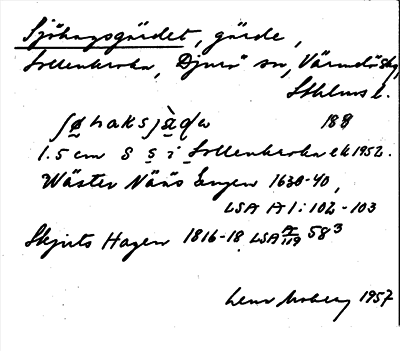 Sjöhagsgärdet, gärde,
Sollenkroka, Djurö sn, Värmdö skg,
Sthlms l.
189
1.5 cm S s i Sollenkroka ek 1952.
Wäster Näñs Engen 1630-40,
LSA A 1: 102-103
Skjuts Hagen 1816-18 LSA A/119 58³
Lena Moberg 1957